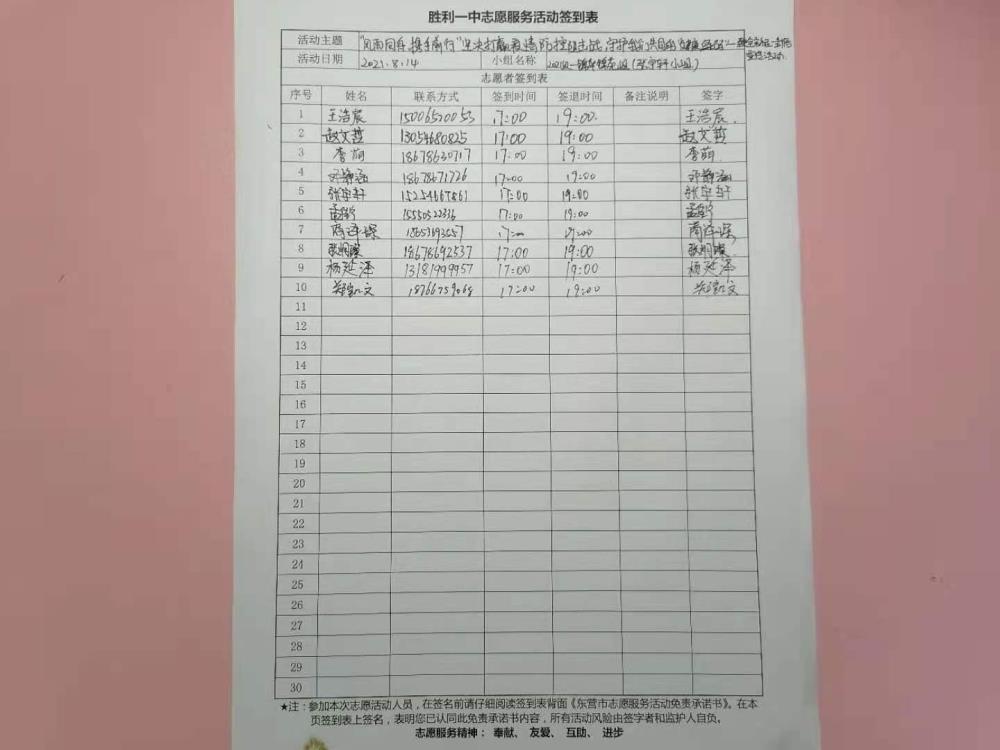 胜利一中志愿服务活动签到表
活动主题 "风雨同舟 携手前行"坚决打赢疫情防控阻击战,守护我们共同的
活动日期 2021.8.14 小组名称 (张宇轩小组)
志愿者签到表
序号 姓名 联系方式 签到时间 签退时间 备注说明 签字
1 王浩宸 15006520053 17:00 19:00 王浩宸
2 赵文哲 13054680825 17:00 19:00 赵文哲
3 李萌 18678630717 17:00 19:00 李萌
4 邓静涵 18678671726 17:00 19:00 邓静涵
5 张宇轩 15254667861 17:00 19:00 张宇轩
6 15550522336 17:00 19:00
7 商泽琛 17:00 19:00 商泽琛
8 张明璨 18678692537 17:00 19:00 张明璨
9 杨延泽 13181999957 17:00 19:00 杨延泽
10 17:00 19:00
11
12
13
14
15
16
17
18
19
20
21
22
23
24
25
26
27
28
29
30
★注:参加本次志愿活动人员,在签名前请仔细阅读签到表背面《东营市志愿服务活动免责承诺书》。在本
页签到表上签名,表明您已认同此免责承诺书内容,所有活动风险由签字者和监护人自负。
志愿服务精神: 奉献、 友爱、 互助、 进步